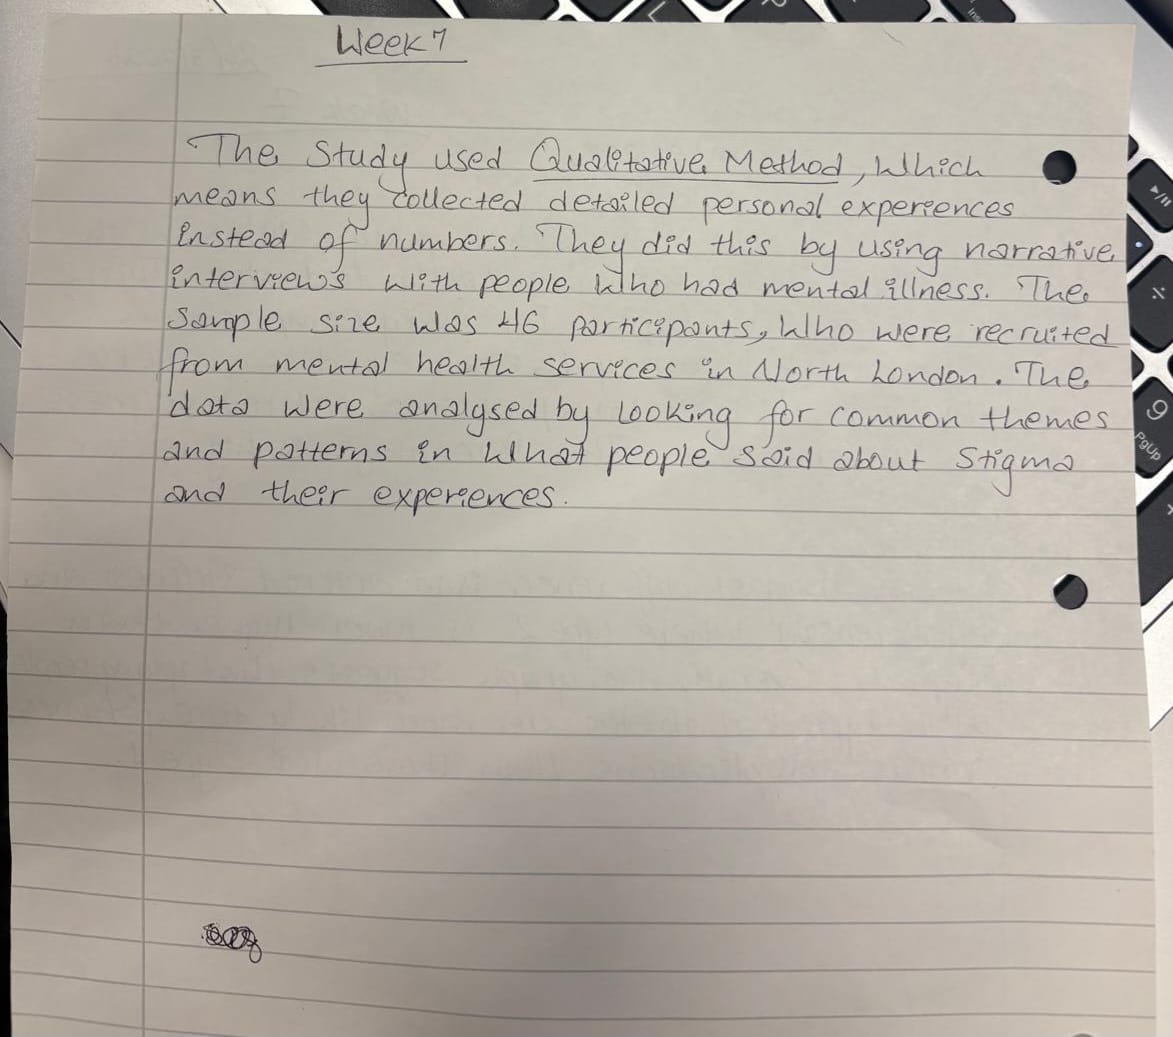 Week 7
The Study used Qualitative Method, Which
means they collected detailed personal experiences
instead of numbers. They did this by using narrative
interviews with people who had mental illness. The
Sample size was 46 participants, who were recruited
from mental health services in North London. The
data were analysed by looking for common themes
and patterns in what people said about Stigma
and their experiences.
PgUp
9
÷